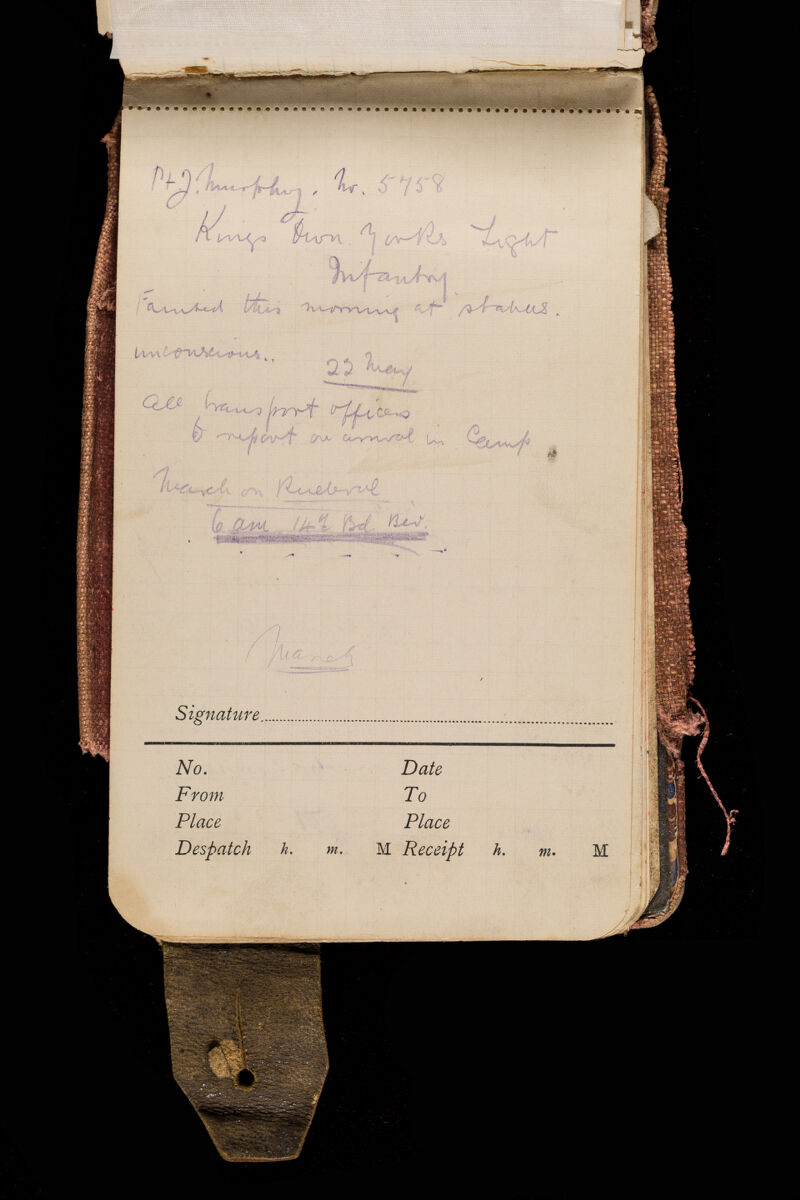 Pt J. Murphy. No. 5758
Kings Own Yorks Light
Infantry
Fainted this morning at stables.
unconscious..
22 May
All transport officers
to report on arrival in Camp
March on
6 am 14th Bd Biv.
March
Signature
No. Date
From To
Place Place
Despatch h. m. M Receipt h. m. M